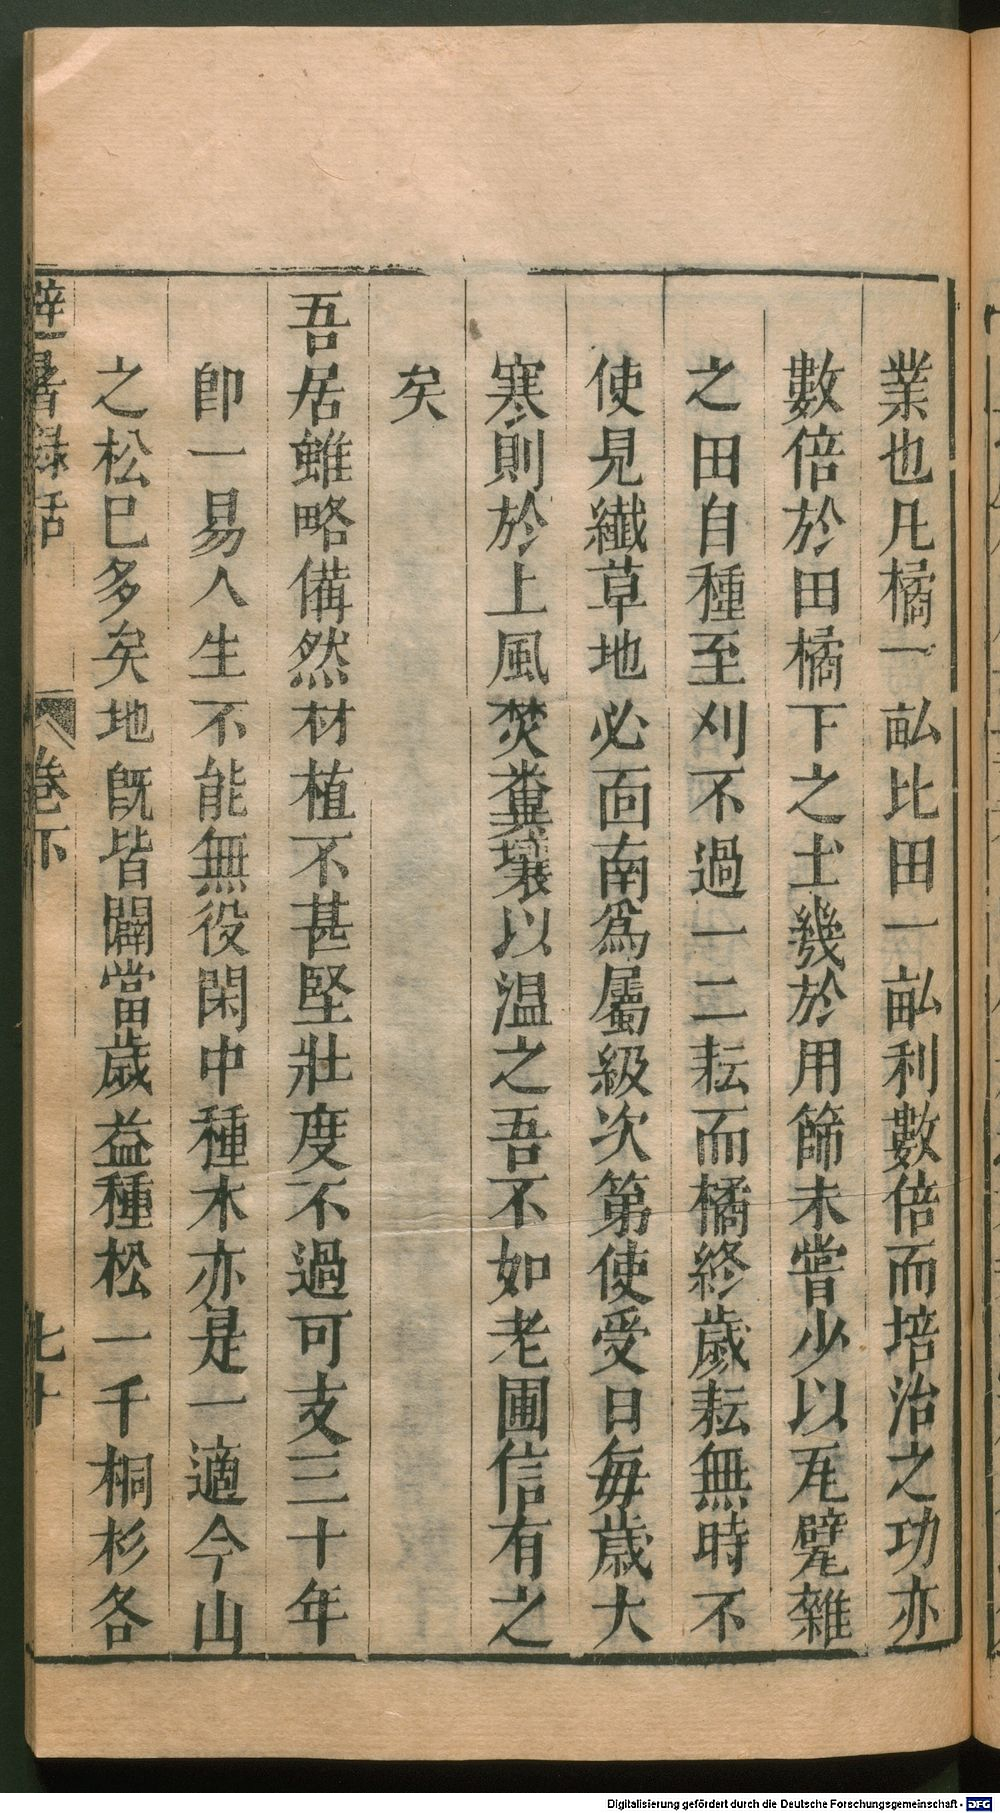 業也凡橘一畝比田一畝利數倍而培治之功亦
數倍於田橘下之土幾於用篩未嘗少以瓦甓雜
之田自種至刈不過一二耘而橘終歲耘無時不
使見纖草地必面南爲屬級次第使受日每歲大
寒則於上風焚糞壤以温之吾不如老圃信有之
矣
吾居雖略備然材植不甚堅壯度不過可支三十年
卽一易人生不能無役閑中種木亦是一適今山
之松已多矣地旣皆闢當歲益種松一千桐杉各
避暑録話
卷下
七十
Digitalisierung gefördert durch die Deutsche Forschungsgemeinschaft - DFG